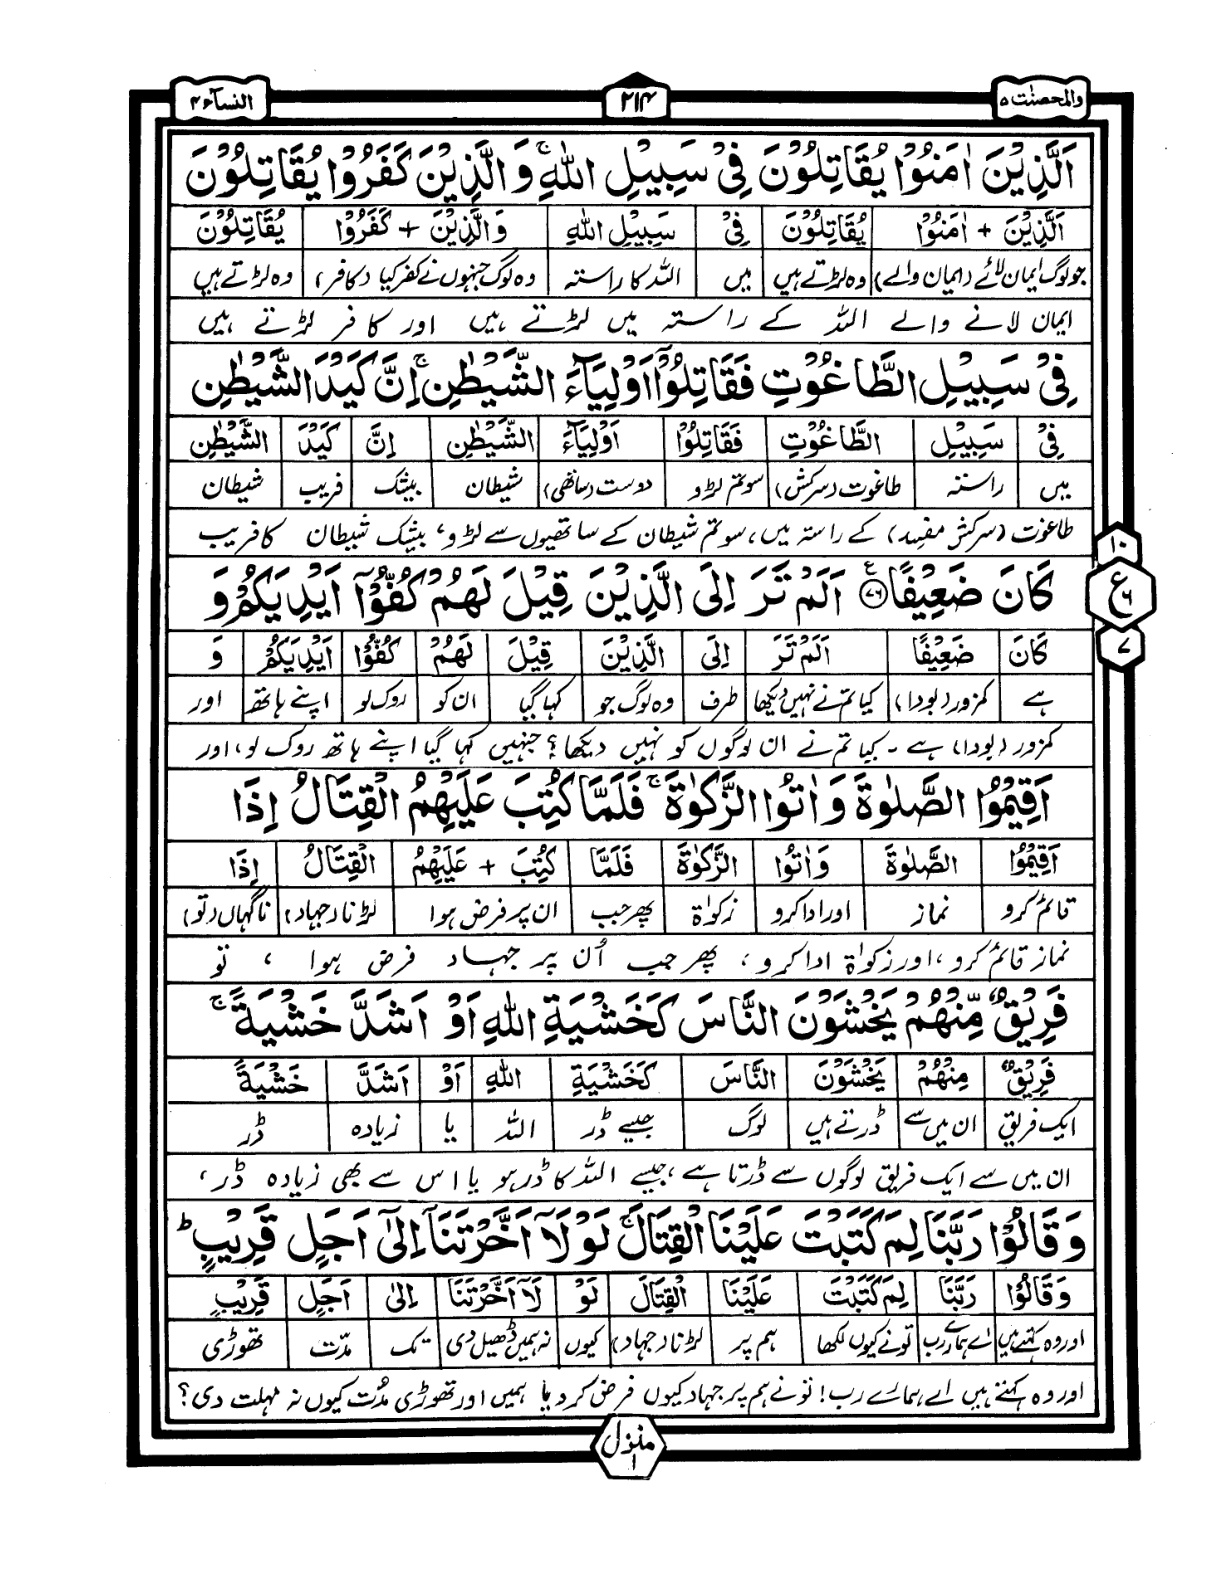 والمحصنٰت ۵ ۲۱۴ النسآء ۴
اَلَّذِیْنَ اٰمَنُوْا یُقَاتِلُوْنَ فِیْ سَبِیْلِ اللّٰهِ ۚ وَ الَّذِیْنَ كَفَرُوْا یُقَاتِلُوْنَ
اَلَّذِیْنَ + اٰمَنُوْا یُقَاتِلُوْنَ فِیْ سَبِیْلِ اللّٰهِ وَ الَّذِیْنَ + كَفَرُوْا یُقَاتِلُوْنَ
جو لوگ ایمان لائے (ایمان والے) وہ لڑتے ہیں میں اللہ کا راستہ وہ لوگ جنہوں نے کفر کیا (کافر) وہ لڑتے ہیں
ایمان لانے والے اللہ کے راستہ میں لڑتے ہیں اور کافر لڑتے ہیں
فِیْ سَبِیْلِ الطَّاغُوْتِ فَقَاتِلُوْۤا اَوْلِیَآءَ الشَّیْطٰنِ ۚ اِنَّ كَیْدَ الشَّیْطٰنِ
فِیْ سَبِیْلِ الطَّاغُوْتِ فَقَاتِلُوْا اَوْلِیَآءَ الشَّیْطٰنِ اِنَّ كَیْدَ الشَّیْطٰنِ
میں راستہ طاغوت (سرکش) سو تم لڑو دوست (ساتھی) شیطان بیشک فریب شیطان
طاغوت (سرکش مفسد) کے راستہ میں، سو تم شیطان کے ساتھیوں سے لڑو، بیشک شیطان کا فریب
۱۰
ع ۶
۷
كَانَ ضَعِیْفًا ﴿۷۶﴾ ع اَلَمْ تَرَ اِلَی الَّذِیْنَ قِیْلَ لَهُمْ كُفُّوْۤا اَیْدِیَكُمْ وَ
كَانَ ضَعِیْفًا اَلَمْ تَرَ اِلَی الَّذِیْنَ قِیْلَ لَهُمْ كُفُّوْۤا اَیْدِیَكُمْ وَ
ہے کمزور (بودا) کیا تم نے نہیں دیکھا طرف وہ لوگ جو کہا گیا ان کو روک لو اپنے ہاتھ اور
کمزور (بودا) ہے ۔ کیا تم نے ان لوگوں کو نہیں دیکھا؟ جنہیں کہا گیا اپنے ہاتھ روک لو، اور
اَقِیْمُوا الصَّلٰوةَ وَ اٰتُوا الزَّكٰوةَ ۚ فَلَمَّا كُتِبَ عَلَیْهِمُ الْقِتَالُ اِذَا
اَقِیْمُوا الصَّلٰوةَ وَ اٰتُوا الزَّكٰوةَ فَلَمَّا كُتِبَ + عَلَیْهِمُ الْقِتَالُ اِذَا
قائم کرو نماز اور ادا کرو زکوٰۃ پھر جب ان پر فرض ہوا لڑنا (جہاد) ناگہاں (تو)
نماز قائم کرو، اور زکوٰۃ ادا کرو، پھر جب اُن پر جہاد فرض ہوا ، تو
فَرِیْقٌ مِّنْهُمْ یَخْشَوْنَ النَّاسَ كَخَشْیَةِ اللّٰهِ اَوْ اَشَدَّ خَشْیَةً ۚ
فَرِیْقٌ مِنْهُمْ یَخْشَوْنَ النَّاسَ كَخَشْیَةِ اللّٰهِ اَوْ اَشَدَّ خَشْیَةً
ایک فریق ان میں سے ڈرتے ہیں لوگ جیسے ڈر اللہ یا زیادہ ڈر
ان میں سے ایک فریق لوگوں سے ڈرتا ہے، جیسے اللہ کا ڈر ہو یا اس سے بھی زیادہ ڈر،
وَ قَالُوْا رَبَّنَا لِمَ كَتَبْتَ عَلَیْنَا الْقِتَالَ ۚ لَوْ لَاۤ اَخَّرْتَنَاۤ اِلٰۤی اَجَلٍ قَرِیْبٍ ؕ
وَ قَالُوْا رَبَّنَا لِمَ كَتَبْتَ عَلَیْنَا الْقِتَالَ لَوْ لَاۤ اَخَّرْتَنَا اِلٰی اَجَلٍ قَرِیْبٍ
اور وہ کہتے ہیں اے ہمارے رب تو نے کیوں لکھا ہم پر لڑنا (جہاد) کیوں نہ ہمیں ڈھیل دی تک مدّت تھوڑی
اور وہ کہتے ہیں اے ہمارے رب! تو نے ہم پر جہاد کیوں فرض کر دیا ہمیں اور تھوڑی مُدّت کیوں نہ مہلت دی؟
منزل ۱